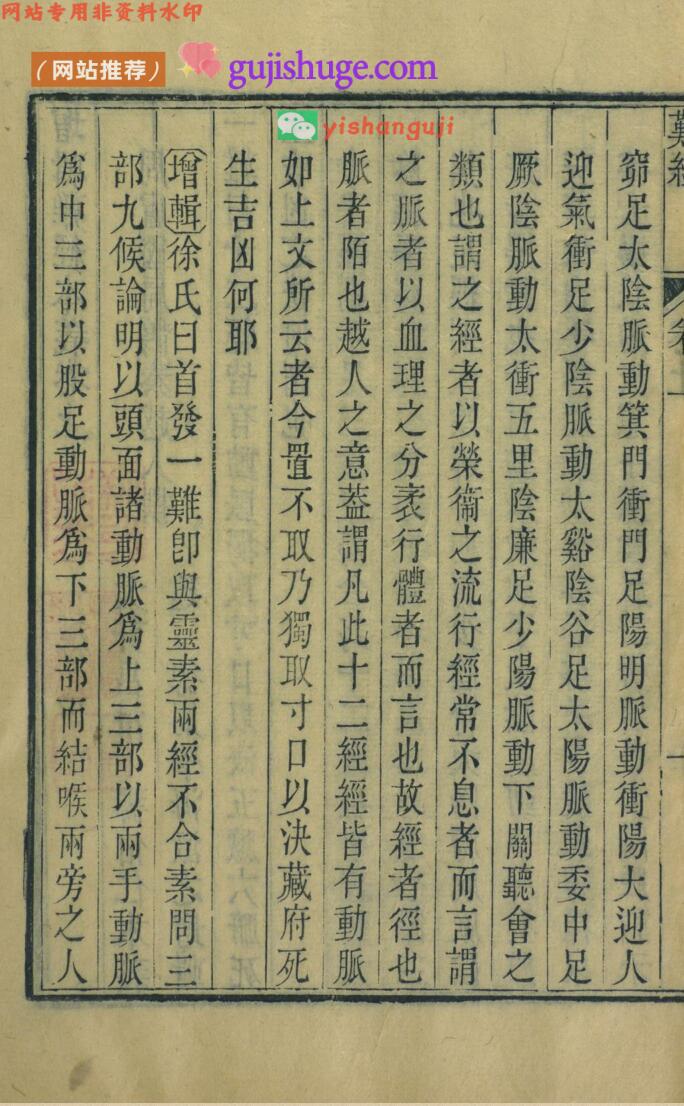 网站专用非资料水印
(网站推荐)
gujishuge.com
yishanguji
難經
卷上
窌足太陰脈動箕門衝門足陽明脈動衝陽大迎人
迎氣衝足少陰脈動太谿陰谷足太陽脈動委中足
厥陰脈動太衝五里陰廉足少陽脈動下關聽會之
類也謂之經者以榮衞之流行經常不息者而言謂
之脈者以血理之分袤行體者而言也故經者徑也
脈者陌也越人之意葢謂凡此十二經經皆有動脈
如上文所云者今置不取乃獨取寸口以決藏府死
生吉凶何耶
增輯徐氏曰首發一難卽與靈素兩經不合素問三
部九候論明以頭面諸動脈爲上三部以兩手動脈
爲中三部以股足動脈爲下三部而結喉兩旁之人